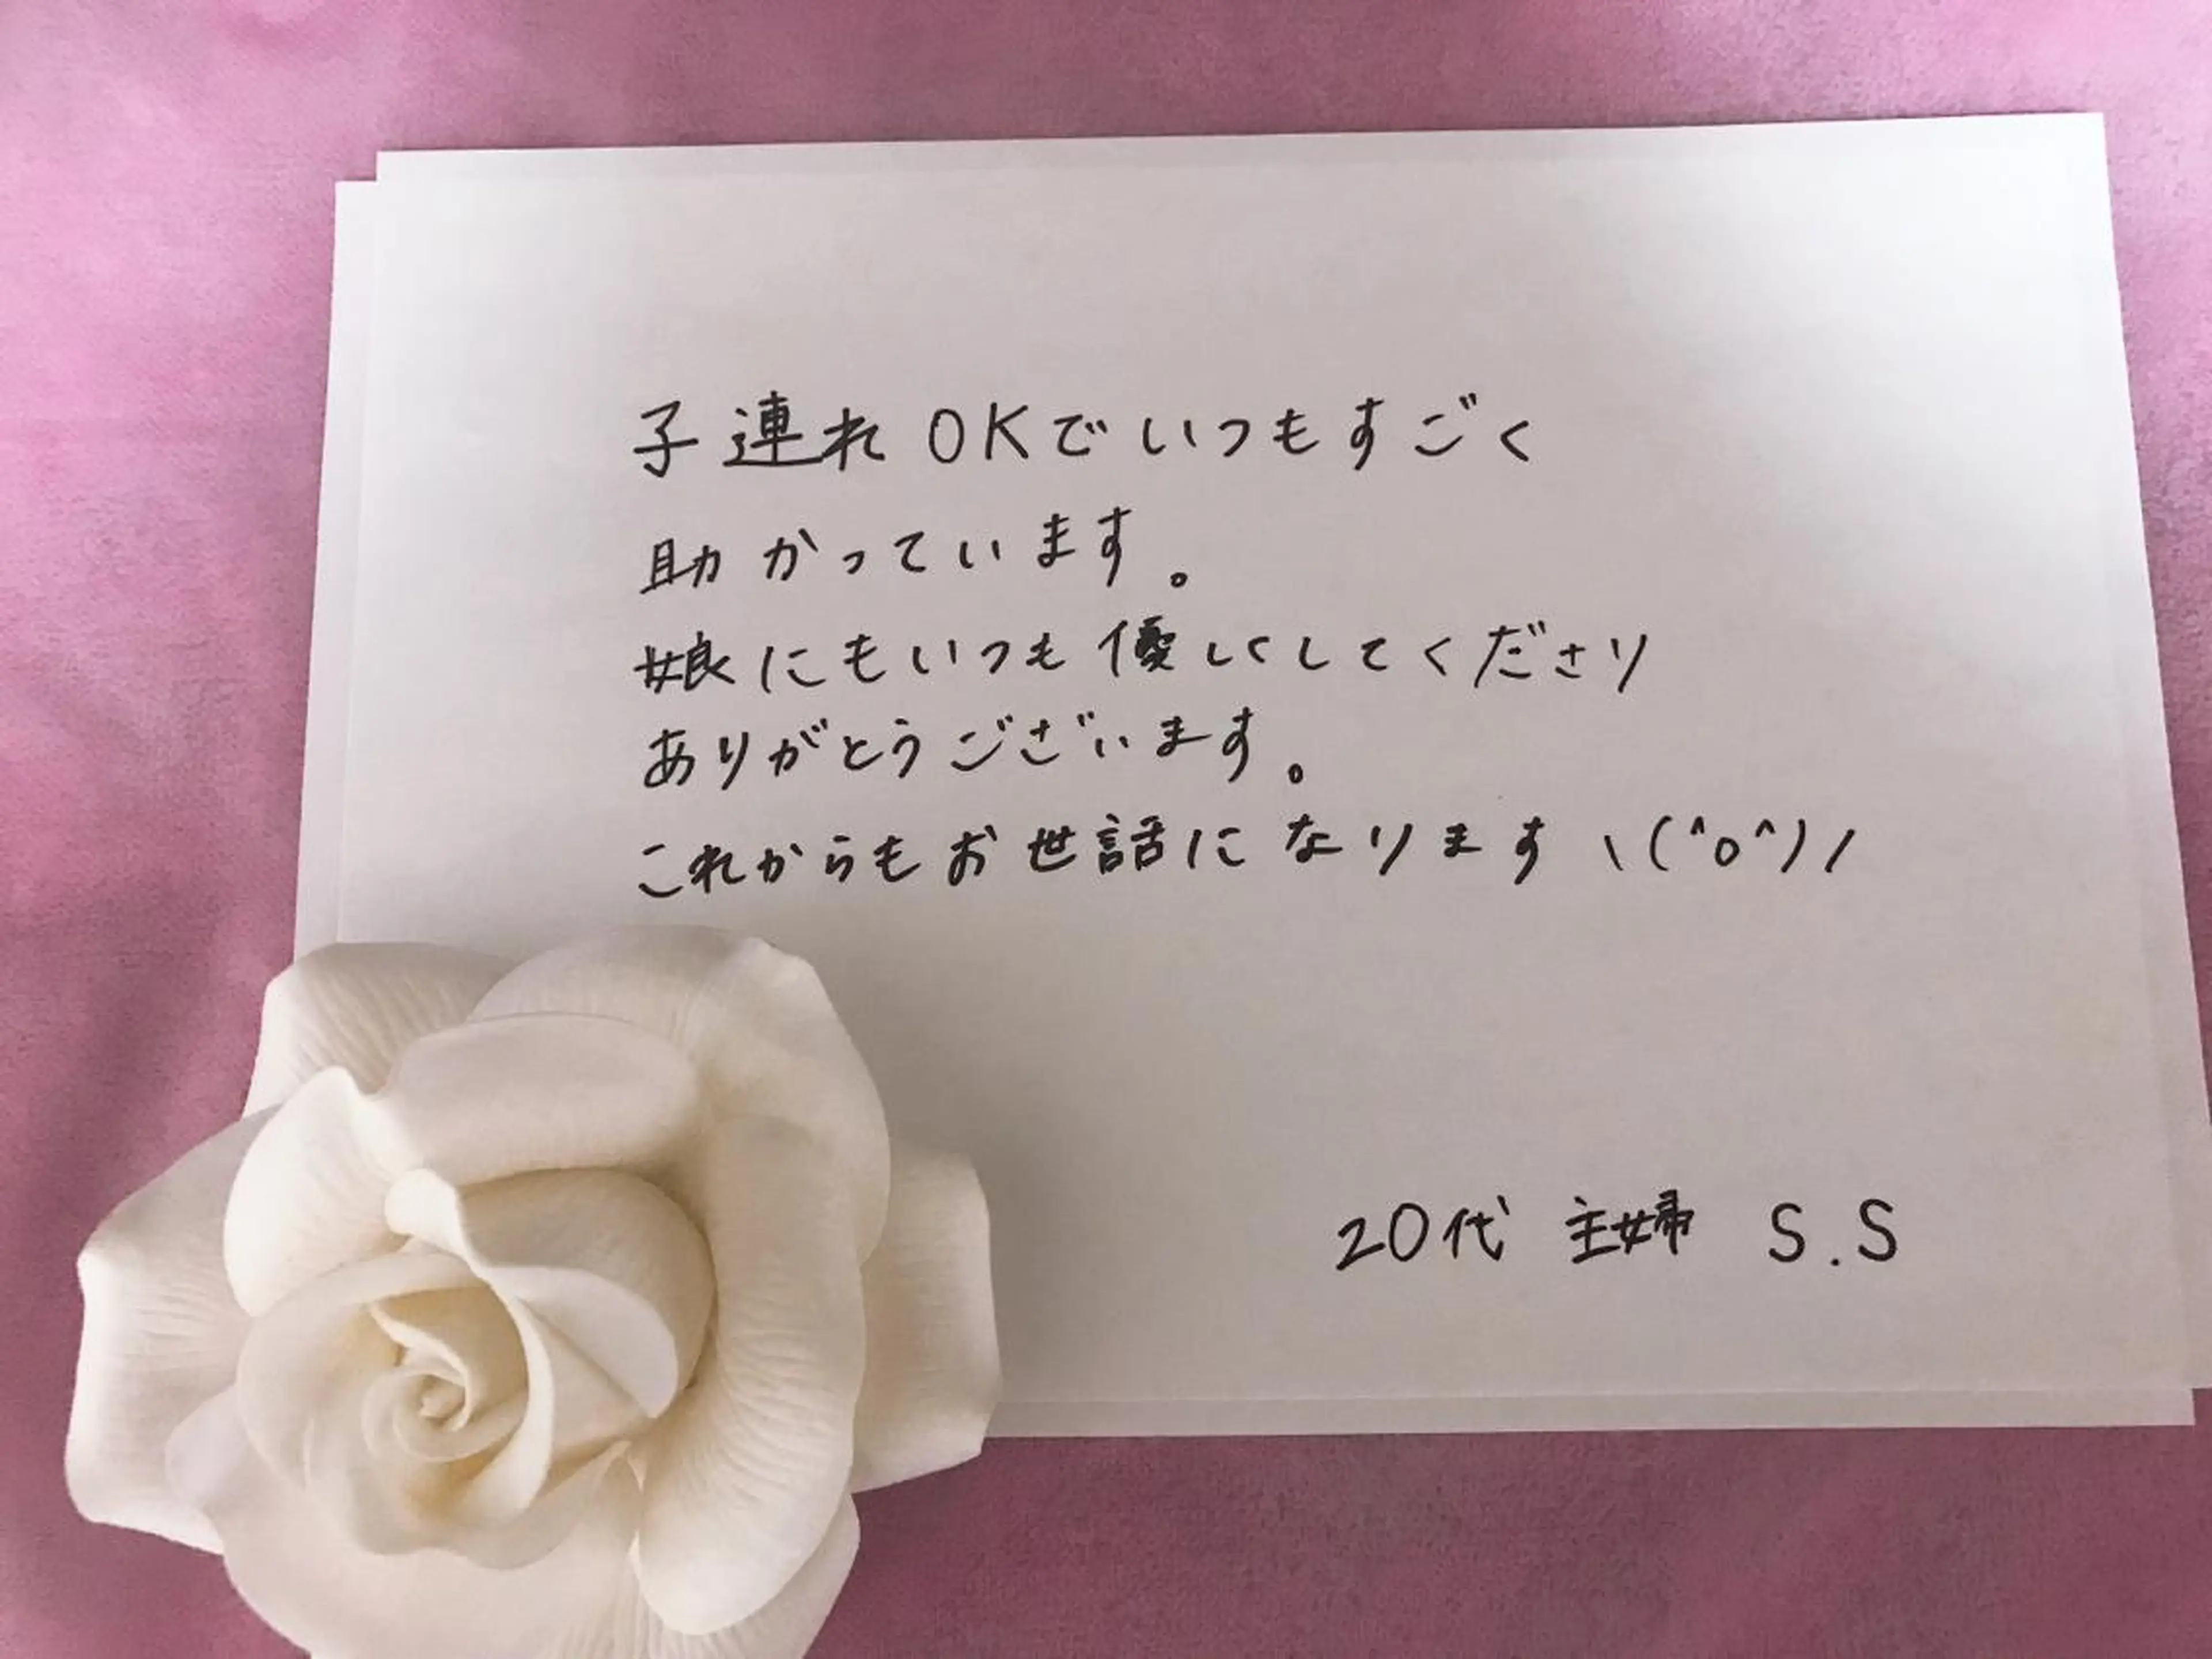 子連れOKでいつもすごく
助かっています。
娘にもいつも優しくしてくださり
ありがとうございます。
これからもお世話になります ヽ(^o^)ノ
20代 主婦 S.S